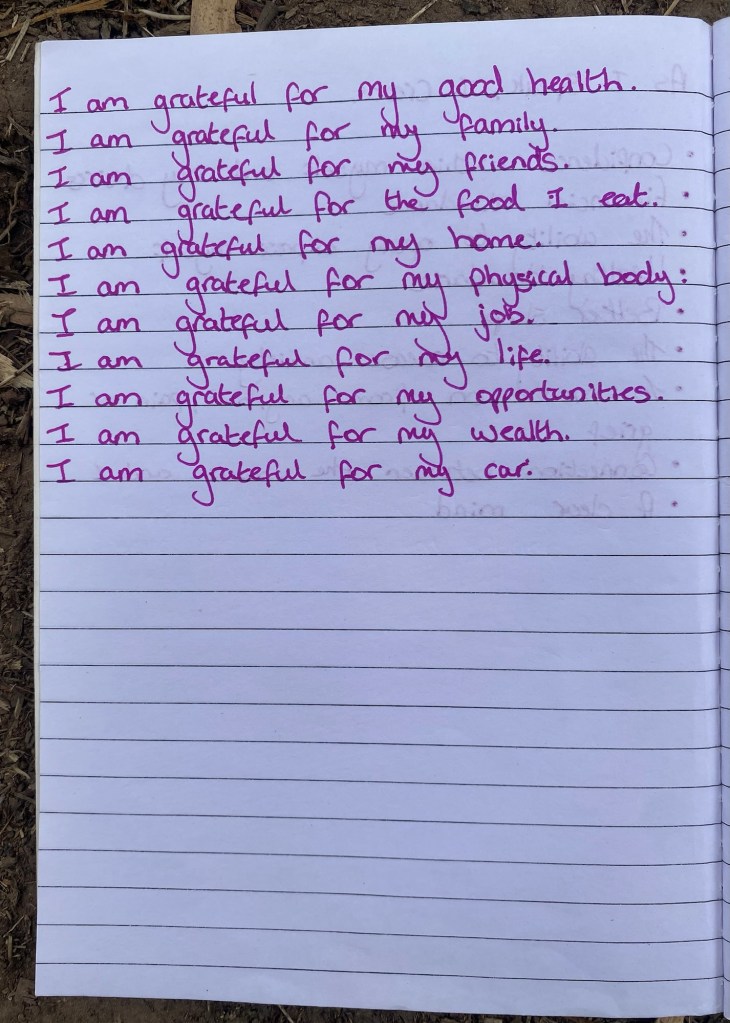 I am grateful for my good health.
I am grateful for my family.
I am grateful for my friends.
I am grateful for the food I eat.
I am grateful for my home.
I am grateful for my physical body:
I am grateful for my job.
I am grateful for my life.
I am grateful for my opportunities.
I am grateful for my wealth.
I am grateful for my car.